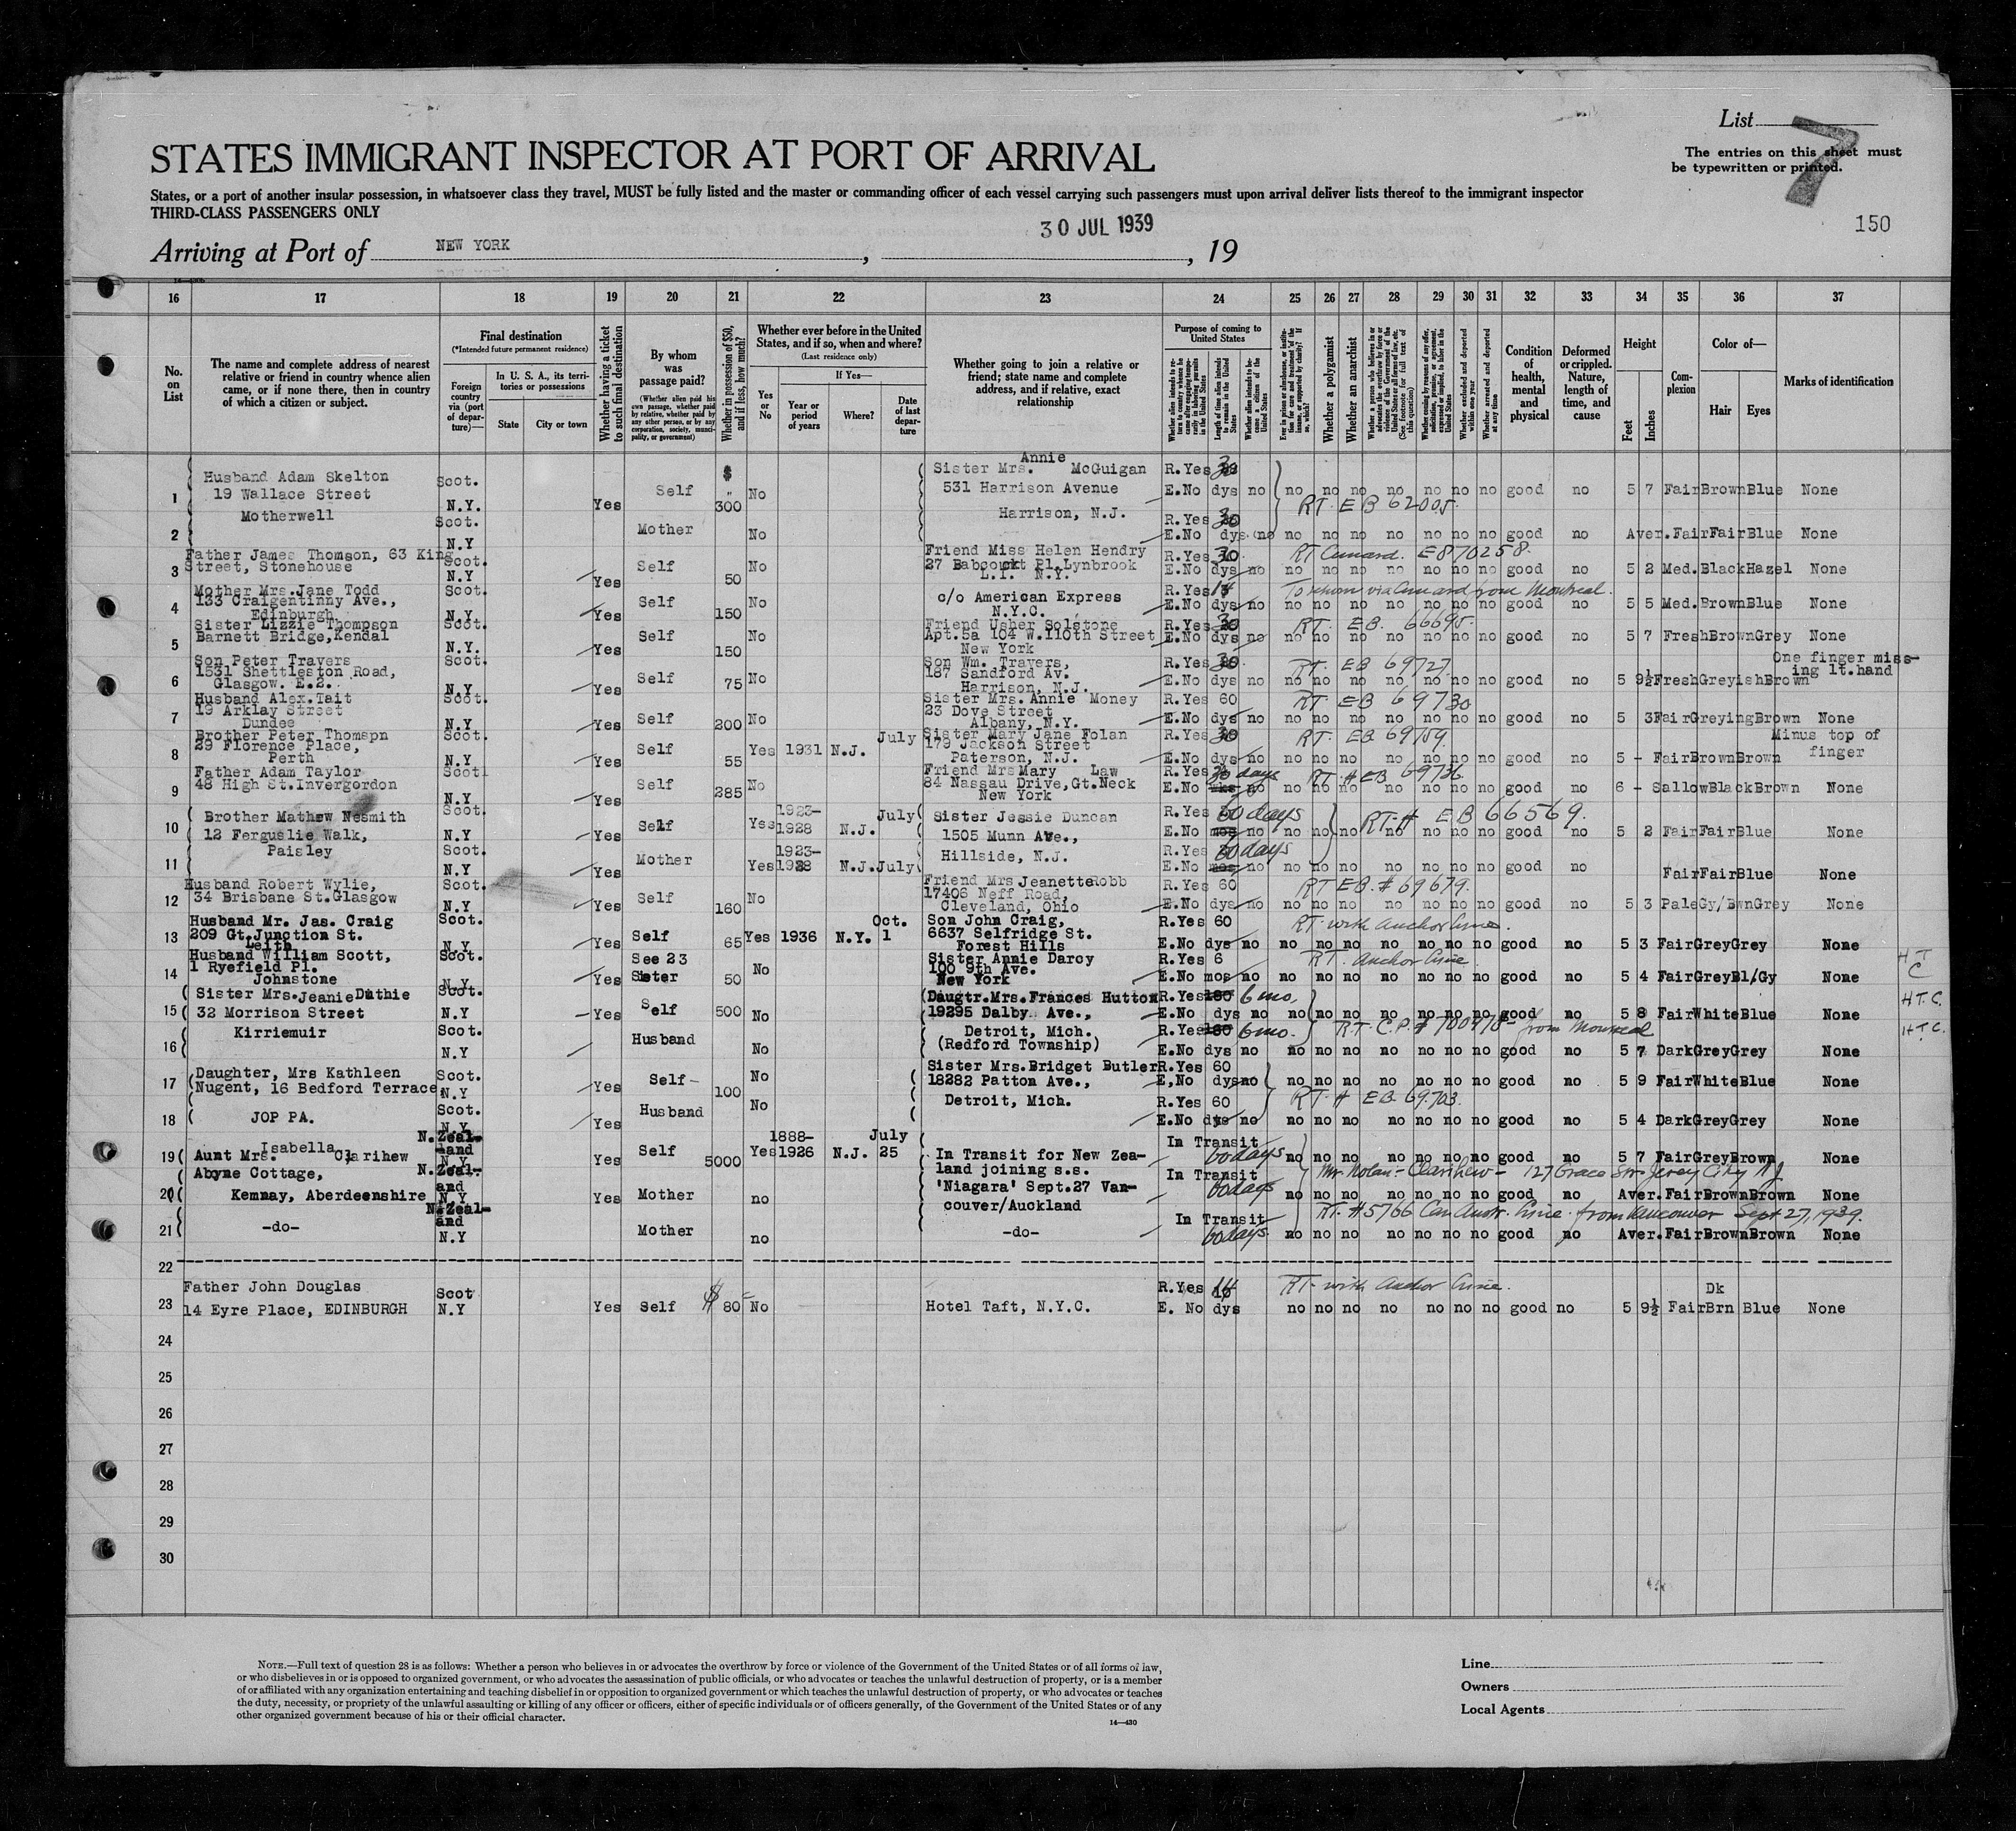 List 7
The entries on this sheet must
be typewritten or printed.
STATES IMMIGRANT INSPECTOR AT PORT OF ARRIVAL
States, or a port of another insular possession, in whatsoever class they travel, MUST be fully listed and the master or commanding officer of each vessel carrying such passengers must upon arrival deliver lists thereof to the immigrant inspector
THIRD-CLASS PASSENGERS ONLY
150
Arriving at Port of NEW YORK, 30 JUL 1939, 19
16 17 18 19 20 21 22 23 24 25 26 27 28 29 30 31 32 33 34 35 36 37
No. on List
The name and complete address of nearest relative or friend in country whence alien came, or if none there, then in country of which a citizen or subject.
Final destination
(*Intended future permanent residence)
Foreign country via (port of departure)—
In U. S. A., its territories or possessions
State
City or town
Whether having a ticket to such final destination
By whom was passage paid?
(Whether alien paid his own passage, whether paid by relative, whether paid by any other person, or by any corporation, society, municipality, or government)
Whether in possession of $50, and if less, how much?
Whether ever before in the United States, and if so, when and where?
(Last residence only)
Yes or No
If Yes—
Year or period of years
Where?
Date of last departure
Whether going to join a relative or friend; state name and complete address, and if relative, exact relationship
Purpose of coming to United States
Length of time alien intends to remain in the United States
Whether alien intends to become a citizen of the United States
Whether a polygamist
Whether an anarchist
Whether excluded and deported within one year
Whether arrested and deported at any time
Condition of health, mental and physical
Deformed or crippled. Nature, length of time, and cause
Height
Feet
Inches
Complexion
Color of—
Hair
Eyes
Marks of identification
1 Husband Adam Skelton 19 Wallace Street Motherwell Scot. N.Y. Yes Self $ 300 No Sister Mrs. Annie McGuigan 531 Harrison Avenue Harrison, N.J. R.Yes 30 E.No dys no no no no no no no no good no 5 7 Fair Brown Blue None
RT. EB 62005.
2 Scot. N.Y Mother No R.Yes 30 E.No dys. no no no no no no no no good no Aver. Fair Fair Blue None
3 Father James Thomson, 63 King Street, Stonehouse Scot. N.Y Yes Self 50 No Friend Miss Helen Hendry 27 Babcourt Pl. Lynbrook L.I. N.Y. R.Yes 30 E.No dys no no no no no no no no good no 5 2 Med. Black Hazel None
RT Cunard. EB70258.
4 Mother Mrs. Jane Todd 133 Craigentinny Ave., Edinburgh Scot. N.Y. Yes Self 150 No c/o American Express N.Y.C. R.Yes 14 E.No dys no no no no no no no no good no 5 5 Med. Brown Blue None
To return via Cunard from Montreal.
5 Sister Lizzie Thompson Barnett Bridge, Kendal Scot. N.Y. Yes Self 150 No Friend Usher Solstone Apt. 5a 104 W. 110th Street New York R.Yes 30 E.No dys no no no no no no no no good no 5 7 Fresh Brown Grey None
RT. EB. 66695.
6 Son Peter Travers 1531 Shettleston Road, Glasgow. E.2. Scot. N.Y Yes Self 75 No Son Wm. Travers, 187 Sandford Av. Harrison, N.J. R.Yes 30 E.No dys no no no no no no no no good no 5 9½ Fresh Greyish Brown One finger missing lt. hand
RT. EB 69727
7 Husband Alex. Tait 19 Arklay Street Dundee Scot. N.Y Yes Self 200 No Sister Mrs. Annie Money 23 Dove Street Albany, N.Y. R.Yes 60 E.No dys no no no no no no no no good no 5 3 Fair Greying Brown None
RT. EB 69730
8 Brother Peter Thomspn 29 Florence Place, Perth Scot. N.Y Yes Self 55 Yes 1931 N.J. July Sister Mary Jane Folan 179 Jackson Street Paterson, N.J. R.Yes 30 E.No dys no no no no no no no no good no 5 - Fair Brown Brown Minus top of finger
RT. EB 69759.
9 Father Adam Taylor 48 High St. Invergordon Scot N.Y Yes Self 285 No Friend Mrs Mary Law 84 Nassau Drive, Gt. Neck New York R.Yes 30 days E.No wks no no no no no no no no good no 6 - Sallow Black Brown None
RT. # EB 69736
10 Brother Mathew Nesmith 12 Ferguslie Walk, Paisley Scot. N.Y Yes Self Yes 1923-1928 N.J. July Sister Jessie Duncan 1505 Munn Ave., Hillside, N.J. R.Yes 60 days E.No mos no no no no no no no no good no 5 2 Fair Fair Blue None
RT. # EB 66569.
11 Scot. N.Y Yes Mother Yes 1923-1928 N.J. July R.Yes 60 days E.No mos no no no no no no no no good no Fair Fair Blue None
12 Husband Robert Wylie, 34 Brisbane St. Glasgow Scot. N.Y Yes Self 160 No Friend Mrs Jeanette Robb 17406 Neff Road, Cleveland, Ohio R.Yes 60 E.No dys no no no no no no no no good no 5 3 Pale Gy/Bwn Grey None
RT EB. # 69679.
13 Husband Mr. Jas. Craig 209 Gt. Junction St. Leith Scot. N.Y Yes Self 65 Yes 1936 N.Y. Oct. 1 Son John Craig, 6637 Selfridge St. Forest Hills R.Yes 60 E.No dys no no no no no no no no good no 5 3 Fair Grey Grey None
RT. with Anchor Line.
14 Husband William Scott, 1 Ryefield Pl. Johnstone Scot. N.Y. Yes See 23 Sister 50 No Sister Annie Darcy 100 9th Ave. New York R.Yes 6 E.No mos no no no no no no no no good no 5 4 Fair Grey Bl/Gy None H T C
RT. Anchor Line.
15 Sister Mrs. Jeanie Duthie 32 Morrison Street Kirriemuir Scot. N.Y Yes Self 500 No Daugtr. Mrs. Frances Hutton 19295 Dalby Ave., Detroit, Mich. (Redford Township) R.Yes 180 6 mo. E.No dys no no no no no no no no good no 5 8 Fair White Blue None H T. C.
R.T. C.P. # 700478 - from Montreal
16 Scot. N.Y Husband No R.Yes 180 6 mo. E.No dys no no no no no no no no good no 5 7 Dark Grey Grey None H T. C.
17 Daughter, Mrs Kathleen Nugent, 16 Bedford Terrace, JOP PA. Scot. N.Y Yes Self 100 No Sister Mrs. Bridget Butler 18282 Patton Ave., Detroit, Mich. R.Yes 60 E.No dys no no no no no no no no good no 5 9 Fair White Blue None
RT. # EB. 69703.
18 Scot. N.Y. Yes Husband No R.Yes 60 E.No dys no no no no no no no no good no 5 4 Dark Grey Grey None
19 Aunt Mrs. Isabella Clarihew Abyne Cottage, Kemnay, Aberdeenshire N.Zealand N.Y Yes Self 5000 Yes 1888-1926 N.J. July 25 In Transit for New Zealand joining s.s. 'Niagara' Sept. 27 Vancouver/Auckland In Transit 60 days no no no no no no no good no 5 7 Fair Grey Brown None
Mr Nolan - Clarihew - 127 Grace St. Jersey City NJ
20 N.Zealand N.Y Yes Mother no In Transit 60 days no no no no no no no good no Aver. Fair Brown Brown None
RT. #5766 Can. Austr. Line from Vancouver Sept 27, 1939.
21 -do- N.Zealand N.Y Mother no -do- In Transit 60 days no no no no no no no good no Aver. Fair Brown Brown None
22
23 Father John Douglas 14 Eyre Place, EDINBURGH Scot N.Y Yes Self $ 80 No Hotel Taft, N.Y.C. R.Yes 14 E. No dys no no no no no no no good no 5 9½ Fair Dk Brn Blue None
RT. with Anchor Line.
24
25
26
27
28
29
30
NOTE.—Full text of question 28 is as follows: Whether a person who believes in or advocates the overthrow by force or violence of the Government of the United States or of all forms of law,
or who disbelieves in or is opposed to organized government, or who advocates the assassination of public officials, or who advocates or teaches the unlawful destruction of property, or is a member
of or affiliated with any organization entertaining and teaching disbelief in or opposition to organized government or which teaches the unlawful destruction of property, or who advocates or teaches
the duty, necessity, or propriety of the unlawful assaulting or killing of any officer or officers, either of specific individuals or of officers generally, of the Government of the United States or of any
other organized government because of his or their official character.
14—430
Line
Owners
Local Agents